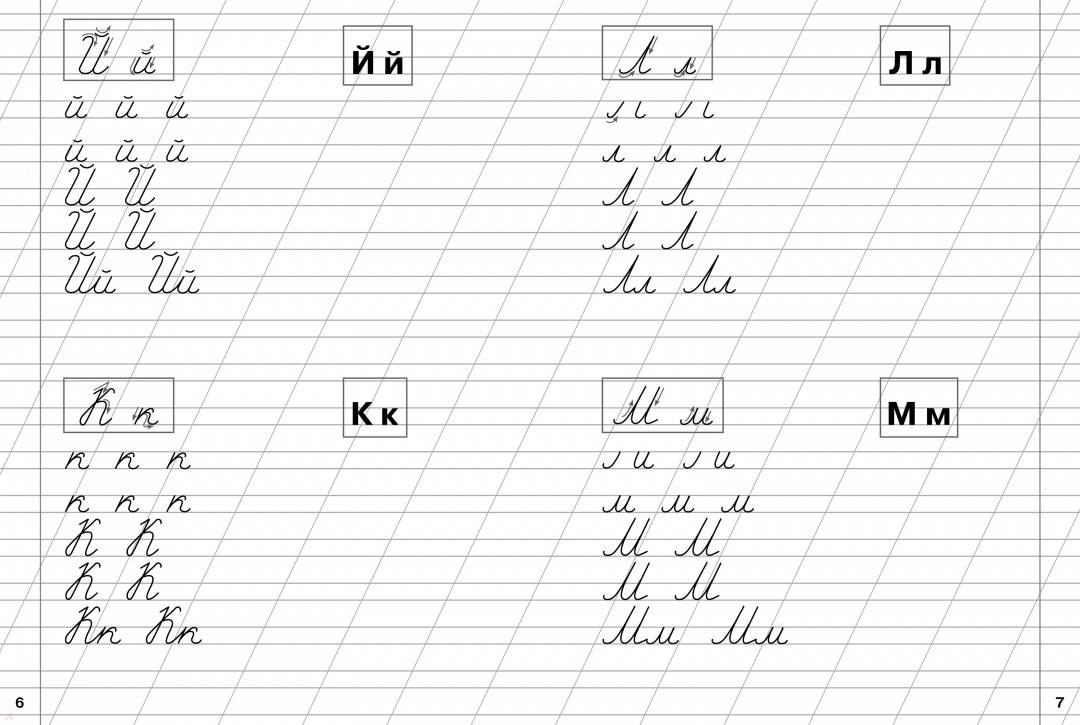 Й й
Й й
й й й
й й й
Й Й
Й Й
Йй Йй
К к
К к
к к к
к к к
К К
К К
Кк Кк
6
Л л
Л л
л л л
Л Л
Л Л
Лл Лл
М м
М м
м м м
М М
М М
Мм Мм
7